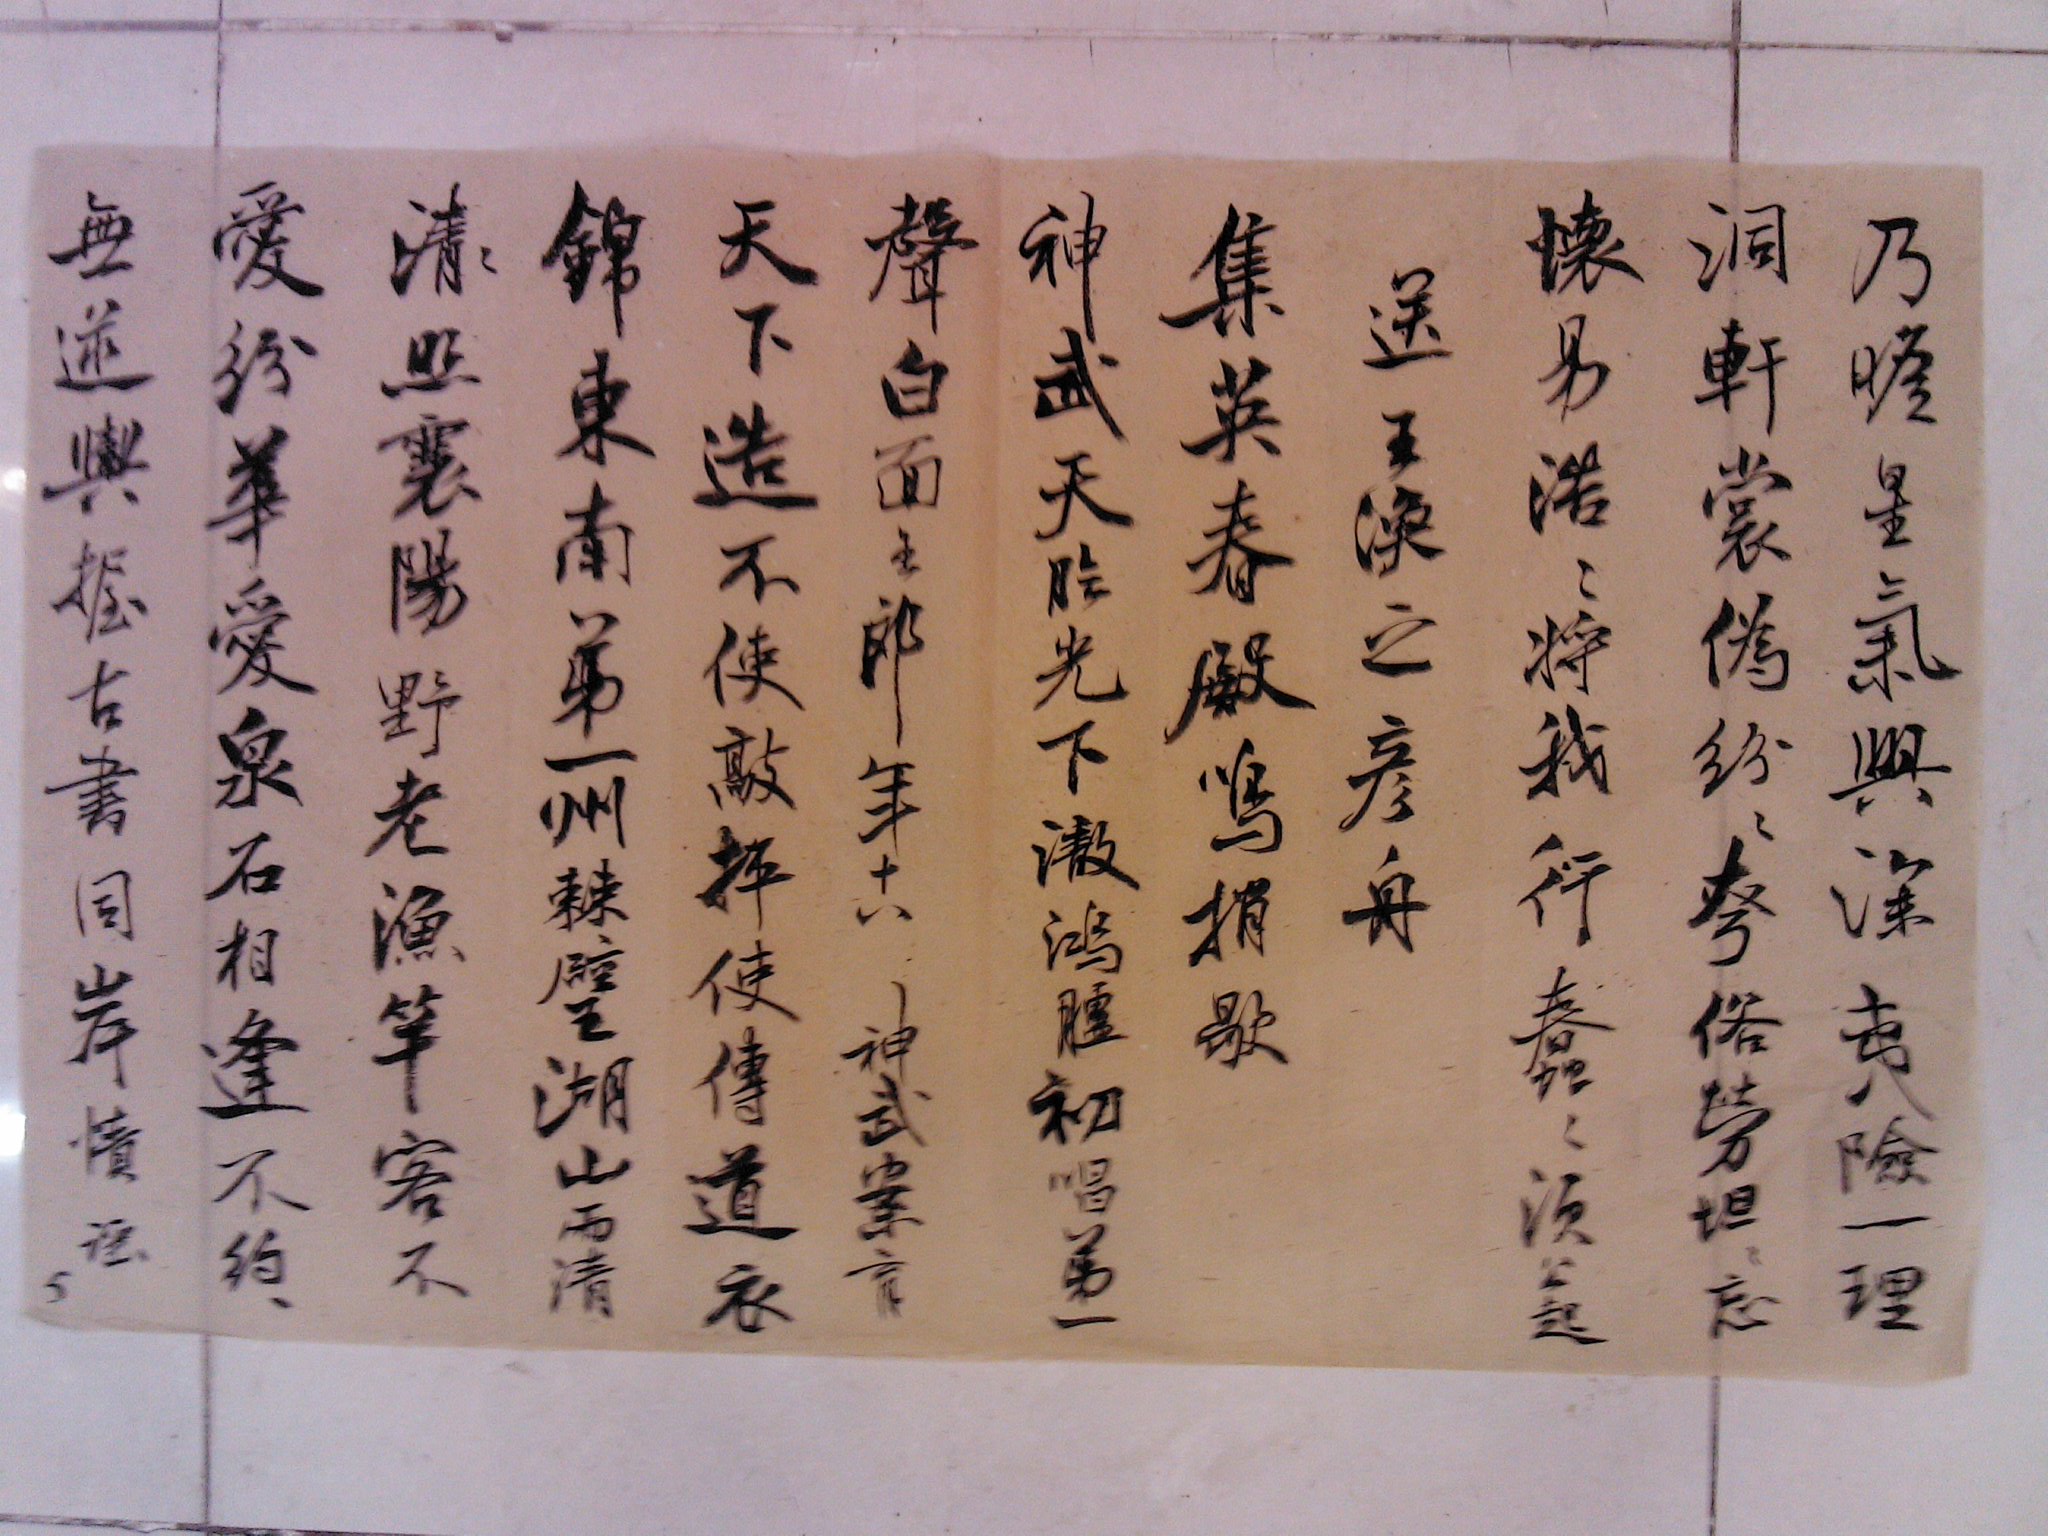 乃瞻星氣興深夷險一理
洞軒裳偽紛〻夸俗勞坦〻忘
懷易浩〻將我行蠢〻須公起
送王渙之彥舟
集英春殿鳴捎歇
神武天臨光下澈鴻臚初唱第一
聲白面王郎年十八 神武樂育
天下造不使敲抨使傳道衣
錦東南第一州棘璧湖山兩清
清〻照襄陽野老漁竿客不
愛紛華愛泉石相逢不約〻
無逆輿握古書同岸幘
5